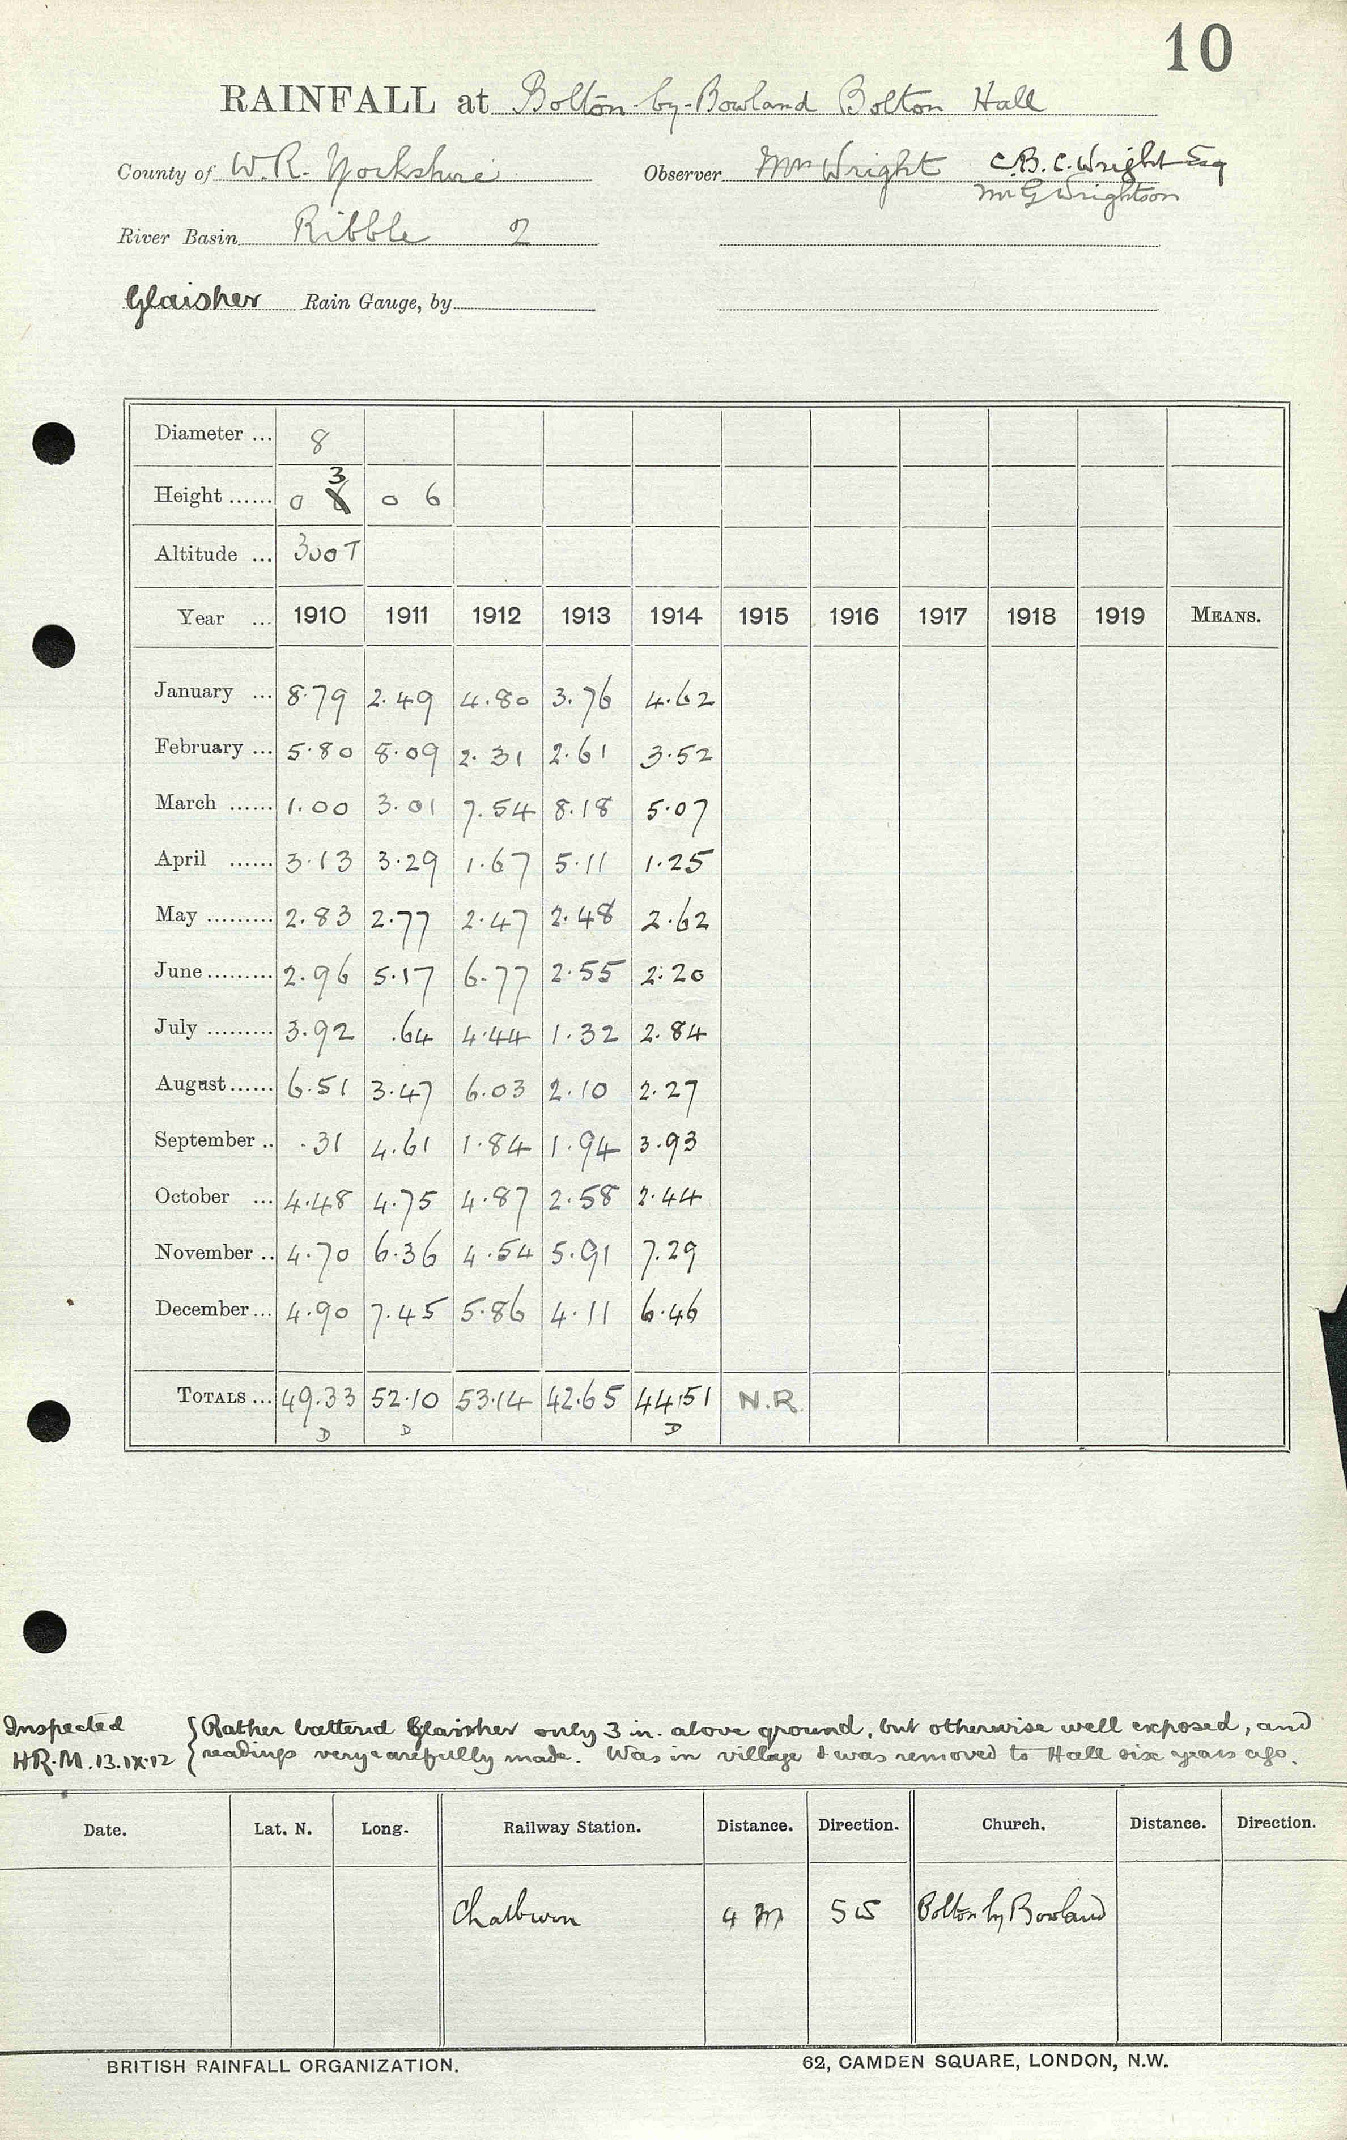 10
RAINFALL at Bolton-by-Bowland Bolton Hall
County of W.R. Yorkshire Observer Mrs Wright C.B.C. Wright Esq
Mr G Wrightson
River Basin Ribble 2
Glaisher Rain Gauge, by
Diameter ... 8
3
Height ...... 0 8 0 6
Altitude ... 300 T
Year ... 1910 1911 1912 1913 1914 1915 1916 1917 1918 1919 MEANS.
January ... 8.79 2.49 4.80 3.76 4.62
February ... 5.80 8.09 2.31 2.61 3.52
March ...... 1.00 3.01 7.54 8.18 5.07
April ...... 3.13 3.29 1.67 5.11 1.25
May ......... 2.83 2.77 2.47 2.48 2.62
June ......... 2.96 5.17 6.77 2.55 2.20
July ......... 3.92 .64 4.44 1.32 2.84
August ...... 6.51 3.47 6.03 2.10 2.27
September .. .31 4.61 1.84 1.94 3.93
October ... 4.48 4.75 4.87 2.58 2.44
November .. 4.70 6.36 4.54 5.91 7.29
December ... 4.90 7.45 5.86 4.11 6.46
TOTALS ... 49.33 52.10 53.14 42.65 44.51 N.R.
D D D
Inspected { Rather battered Glaisher only 3 in. above ground, but otherwise well exposed, and
H.R.M. 13.IX.12 readings very carefully made. Was in village & was removed to Hall six years ago.
Date. Lat. N. Long. Railway Station. Distance. Direction. Church. Distance. Direction.
Chatburn 4 m SW Bolton by Bowland
BRITISH RAINFALL ORGANIZATION. 62, CAMDEN SQUARE, LONDON, N.W.